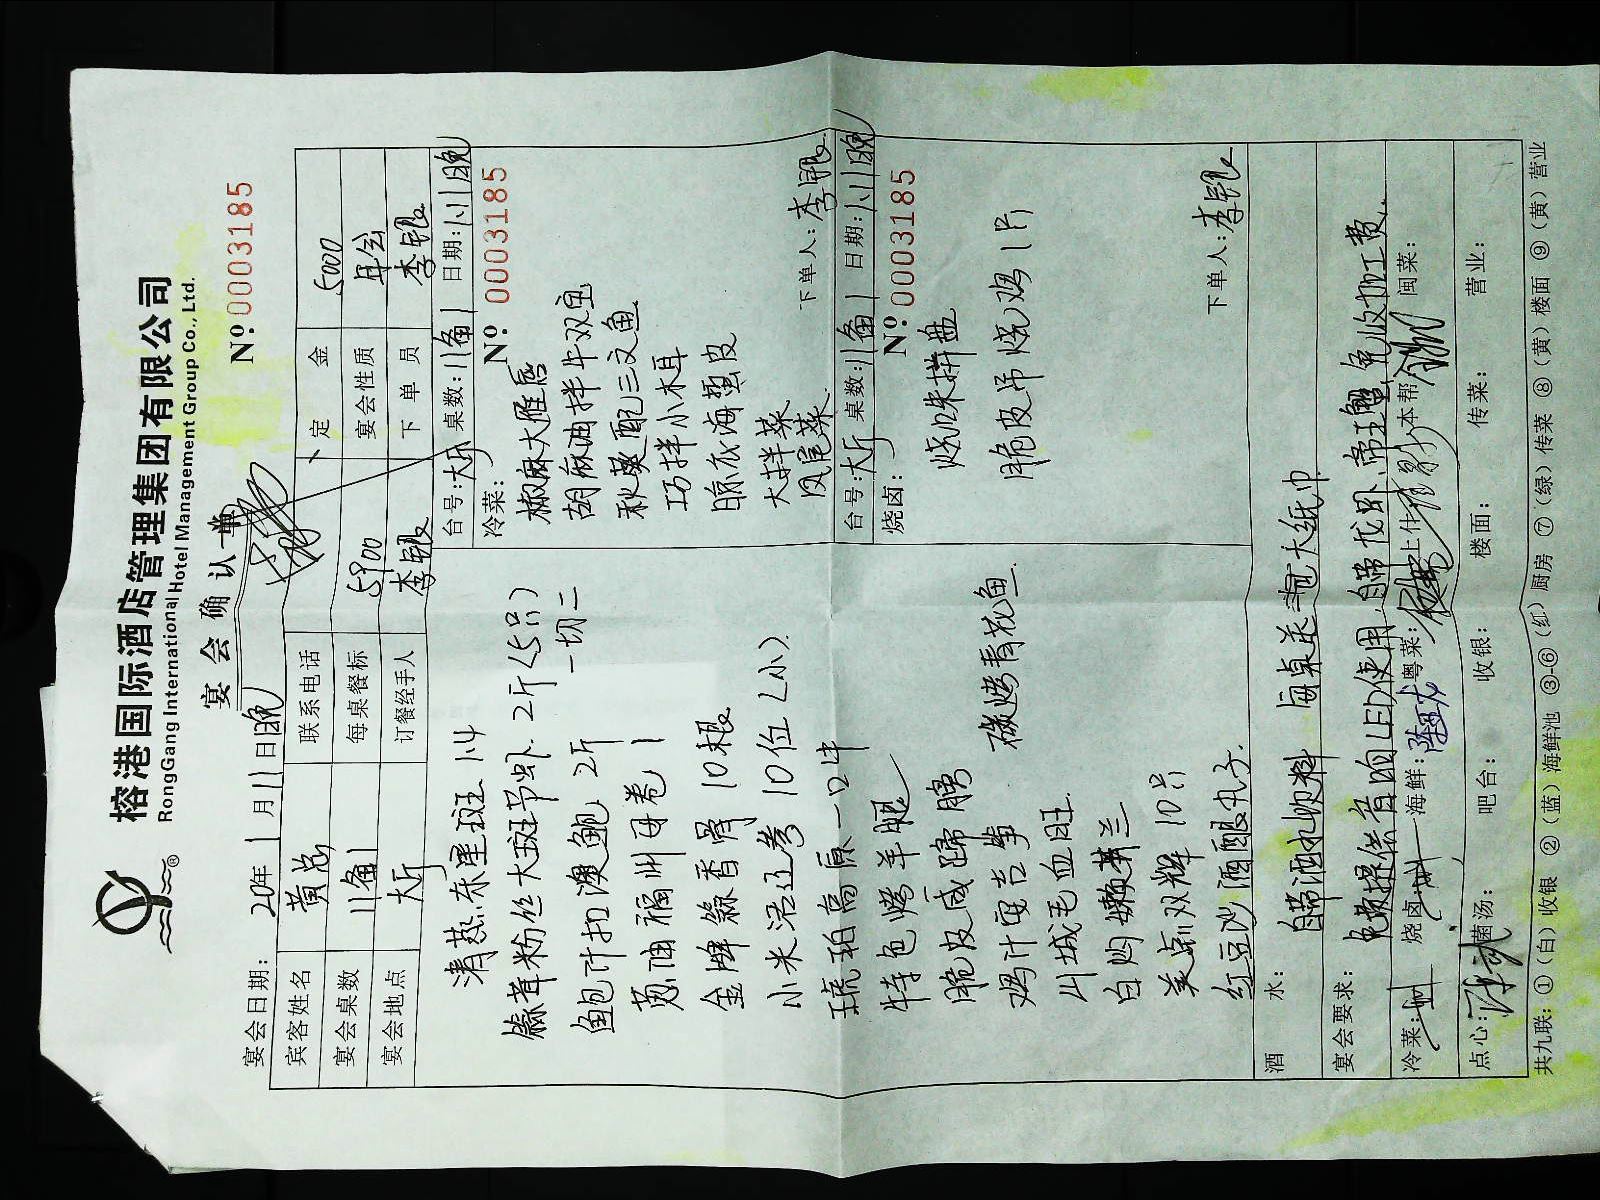 榕港国际酒店管理集团有限公司
RongGang International Hotel Management Group Co., Ltd.
®
宴会确认单
Nº: 0003185
宴会日期: 20年1月11日晚
宾客姓名 黄总 联系电话 定金 5000
宴会桌数 11备1 每桌餐标 5900 宴会性质 年会
宴会地点 大厅 订餐经手人 李银 下单员 李银
清蒸东星斑 1斗
蒜茸粉丝大斑节虾 2斤(5只) 一切二
鲍汁扣澳鲍 2斤
葱油福州母卷 1
金牌蒜香骨 10根
小米活辽参 10位(小)
琥珀高原一口牛
特色烤羊腿
脆皮咸蹄膀
碳烤青花鱼
鸡汁安吉笋
斗城毛血旺
白灼嫩芥兰
美点双辉 10只
红豆沙酒酿丸子
台号: 大厅 桌数: 11备1 日期: 1/11晚
冷菜:
Nº: 0003185
椒麻大雁唇
胡麻油拌牛双宝
秋葵配三文鱼
巧拌小木耳
凉瓜海蜇皮
大拌菜
凤尾菜
下单人: 李银
台号: 大厅 桌数: 11备1 日期: 1/11晚
烧卤:
Nº: 0003185
烧味拼盘
脆皮吊烧鸡 1片
下单人: 李银
酒水: 自带酒水饮料 每桌送 大纸巾
宴会要求: 免费提供音响LED使用 自带龙虾、帝王蟹免收加工费
冷菜: 烧卤: 海鲜: 粤菜: 上什: 本帮: 闽菜:
点心: 菌汤: 吧台: 收银: 楼面: 传菜: 营业:
共九联: ①(白)收银 ②(蓝)海鲜池 ③-⑥(红)厨房 ⑦(绿)传菜 ⑧(黄)楼面 ⑨(黄)营业